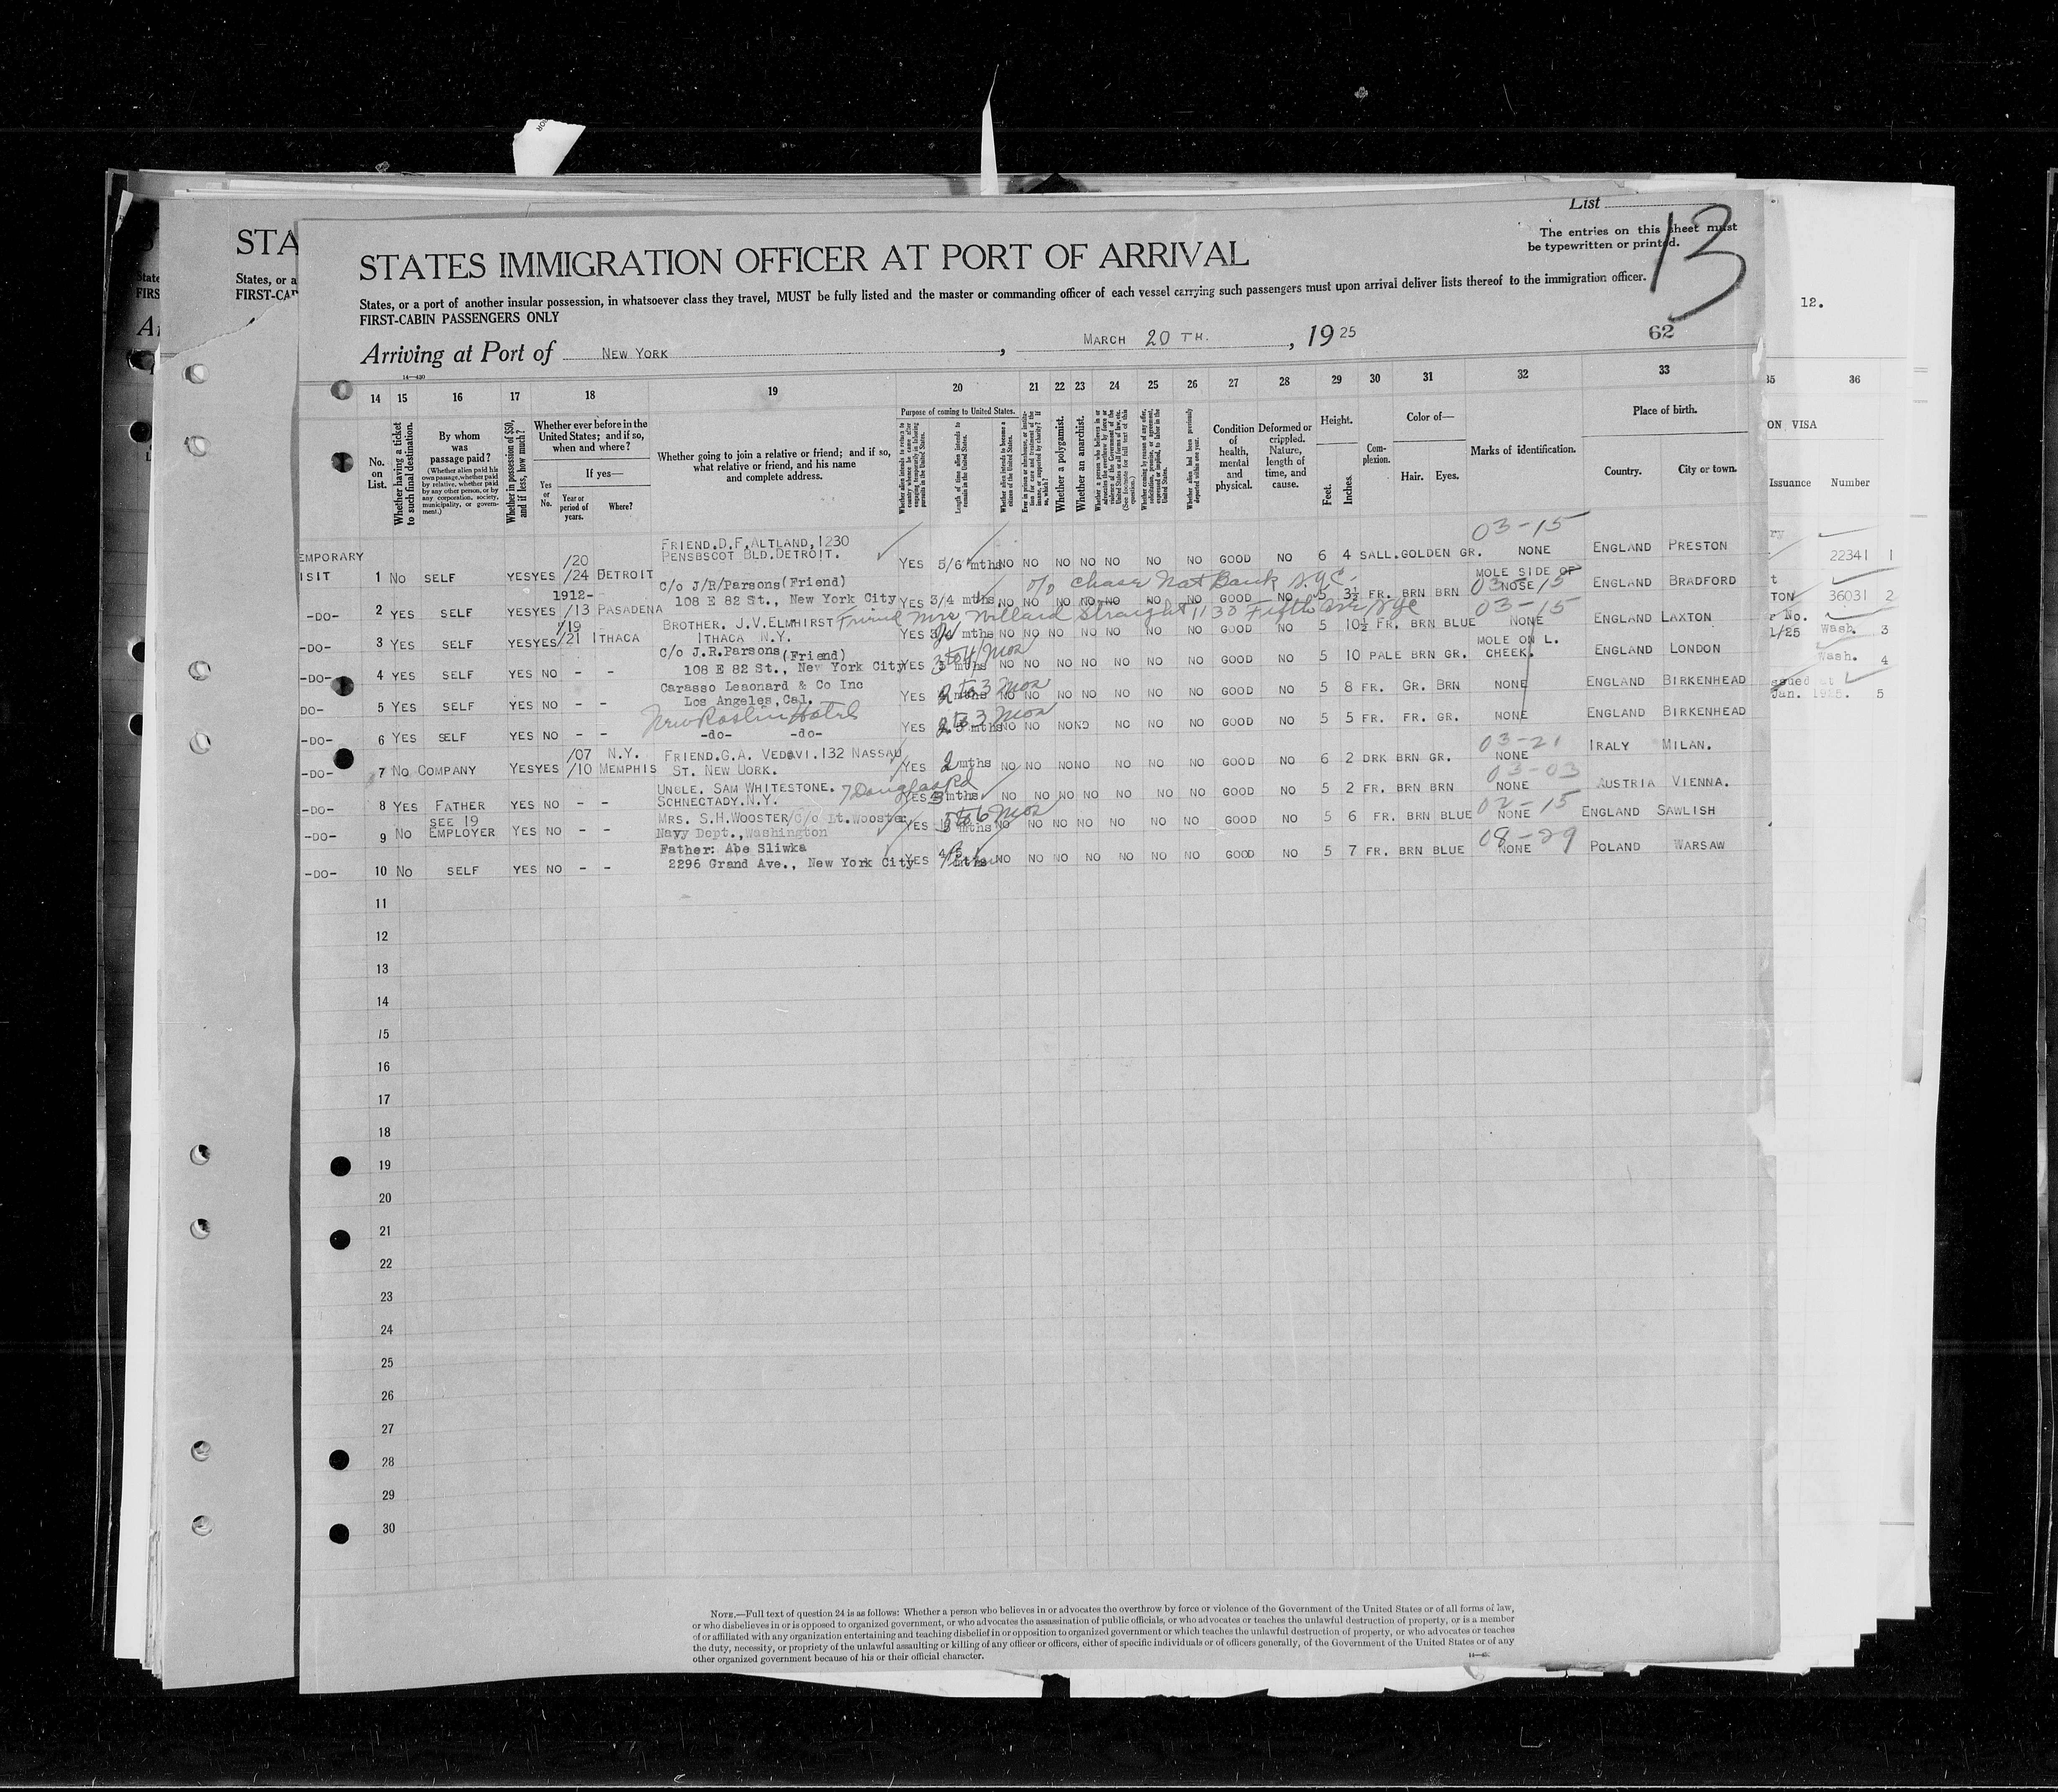 List
13
The entries on this sheet must
be typewritten or printed.
STATES IMMIGRATION OFFICER AT PORT OF ARRIVAL
States, or a port of another insular possession, in whatsoever class they travel, MUST be fully listed and the master or commanding officer of each vessel carrying such passengers must upon arrival deliver lists thereof to the immigration officer.
FIRST-CABIN PASSENGERS ONLY
STA
States, or a
FIRST-CA
12.
62
Arriving at Port of NEW YORK, MARCH 20 TH., 1925
14 15 16 17 18 19 20 21 22 23 24 25 26 27 28 29 30 31 32 33
35 36
No. on List.
Whether having a ticket to such final destination.
By whom was passage paid?
(Whether alien paid his own passage, whether paid by relative, whether paid by any other person, or by any corporation, society, municipality, or government.)
Whether in possession of $50, and if less, how much?
Whether ever before in the United States; and if so, when and where?
If yes—
Yes or No.
Year or period of years.
Where?
Whether going to join a relative or friend; and if so, what relative or friend, and his name and complete address.
Purpose of coming to United States.
Length of time alien intends to remain in the United States.
Whether alien intends to become a citizen of the United States.
Whether a polygamist.
Whether an anarchist.
Condition of health, mental and physical.
Deformed or crippled. Nature, length of time, and cause.
Height.
Feet. Inches.
Complexion.
Color of—
Hair. Eyes.
Marks of identification.
Place of birth.
Country. City or town.
ON VISA
Issuance Number
03-15
EMPORARY
ISIT 1 NO SELF YES YES /20 /24 DETROIT FRIEND.D.F.ALTLAND,1230 PENSBSCOT BLD.DETROIT. YES 5/6 mths NO NO NO NO NO NO NO GOOD NO 6 4 SALL.GOLDEN GR. NONE ENGLAND PRESTON 22341 1
-DO- 2 YES SELF YES YES 1912- /13 PASADENA C/o J/R/Parsons (Friend) 108 E 82 St., New York City YES 3/4 mths NO NO NO NO NO NO NO GOOD NO 5 3½ FR. BRN BRN MOLE SIDE OF NOSE 03-15 ENGLAND BRADFORD 36031 2
c/o Chase Nat Bank N.Y.C.
-DO- 3 YES SELF YES YES /19 /21 ITHACA BROTHER. J.V.ELMHIRST ITHACA N.Y. YES 3/4 mths NO NO NO NO NO NO NO GOOD NO 5 10½ FR. BRN BLUE NONE 03-15 ENGLAND LAXTON Wash. 3
Friend Mrs Willard Straight 1130 Fifth Ave NYC
-DO- 4 YES SELF YES NO - - C/o J.R.Parsons (Friend) 108 E 82 St., New York City YES 3 to 4 mos NO NO NO NO NO NO NO GOOD NO 5 10 PALE BRN GR. MOLE ON L. CHEEK. ENGLAND LONDON Wash. 4
DO- 5 YES SELF YES NO - - Carasso Leaonard & Co Inc Los Angeles, Cal. YES 2 to 3 mos NO NO NO NO NO NO NO GOOD NO 5 8 FR. GR. BRN NONE ENGLAND BIRKENHEAD Jan. 1925. 5
-DO- 6 YES SELF YES NO - - -do- -do- YES 2 to 3 mos NO NO NO NO NO NO NO GOOD NO 5 5 FR. FR. GR. NONE ENGLAND BIRKENHEAD
-DO- 7 NO COMPANY YES YES /07 /10 N.Y. MEMPHIS FRIEND.G.A. VEDAVI.132 NASSAU ST. NEW UORK. YES 2 mths NO NO NO NO NO NO NO GOOD NO 6 2 DRK BRN GR. 03-21 NONE IRALY MILAN.
-DO- 8 YES FATHER YES NO - - UNCLE. SAM WHITESTONE. 7 Douglas Rd SCHNECTADY.N.Y. YES 3 mths NO NO NO NO NO NO NO GOOD NO 5 2 FR. BRN BRN 03-03 NONE AUSTRIA VIENNA.
-DO- 9 NO SEE 19 EMPLOYER YES NO - - MRS. S.H.WOOSTER/C/o Lt.Wooster Navy Dept., Washington YES 5 to 6 mos NO NO NO NO NO NO NO GOOD NO 5 6 FR. BRN BLUE 02-15 NONE ENGLAND SAWLISH
-DO- 10 NO SELF YES NO - - Father: Abe Sliwka 2296 Grand Ave., New York City YES mths NO NO NO NO NO NO NO GOOD NO 5 7 FR. BRN BLUE 08-29 NONE POLAND WARSAW
11
12
13
14
15
16
17
18
19
20
21
22
23
24
25
26
27
28
29
30
NOTE.—Full text of question 24 is as follows: Whether a person who believes in or advocates the overthrow by force or violence of the Government of the United States or of all forms of law,
or who disbelieves in or is opposed to organized government, or who advocates the assassination of public officials, or who advocates or teaches the unlawful destruction of property, or is a member
of or affiliated with any organization entertaining and teaching disbelief in or opposition to organized government or which teaches the unlawful destruction of property, or who advocates or teaches
the duty, necessity, or propriety of the unlawful assaulting or killing of any officer or officers, either of specific individuals or of officers generally, of the Government of the United States or of any
other organized government because of his or their official character.